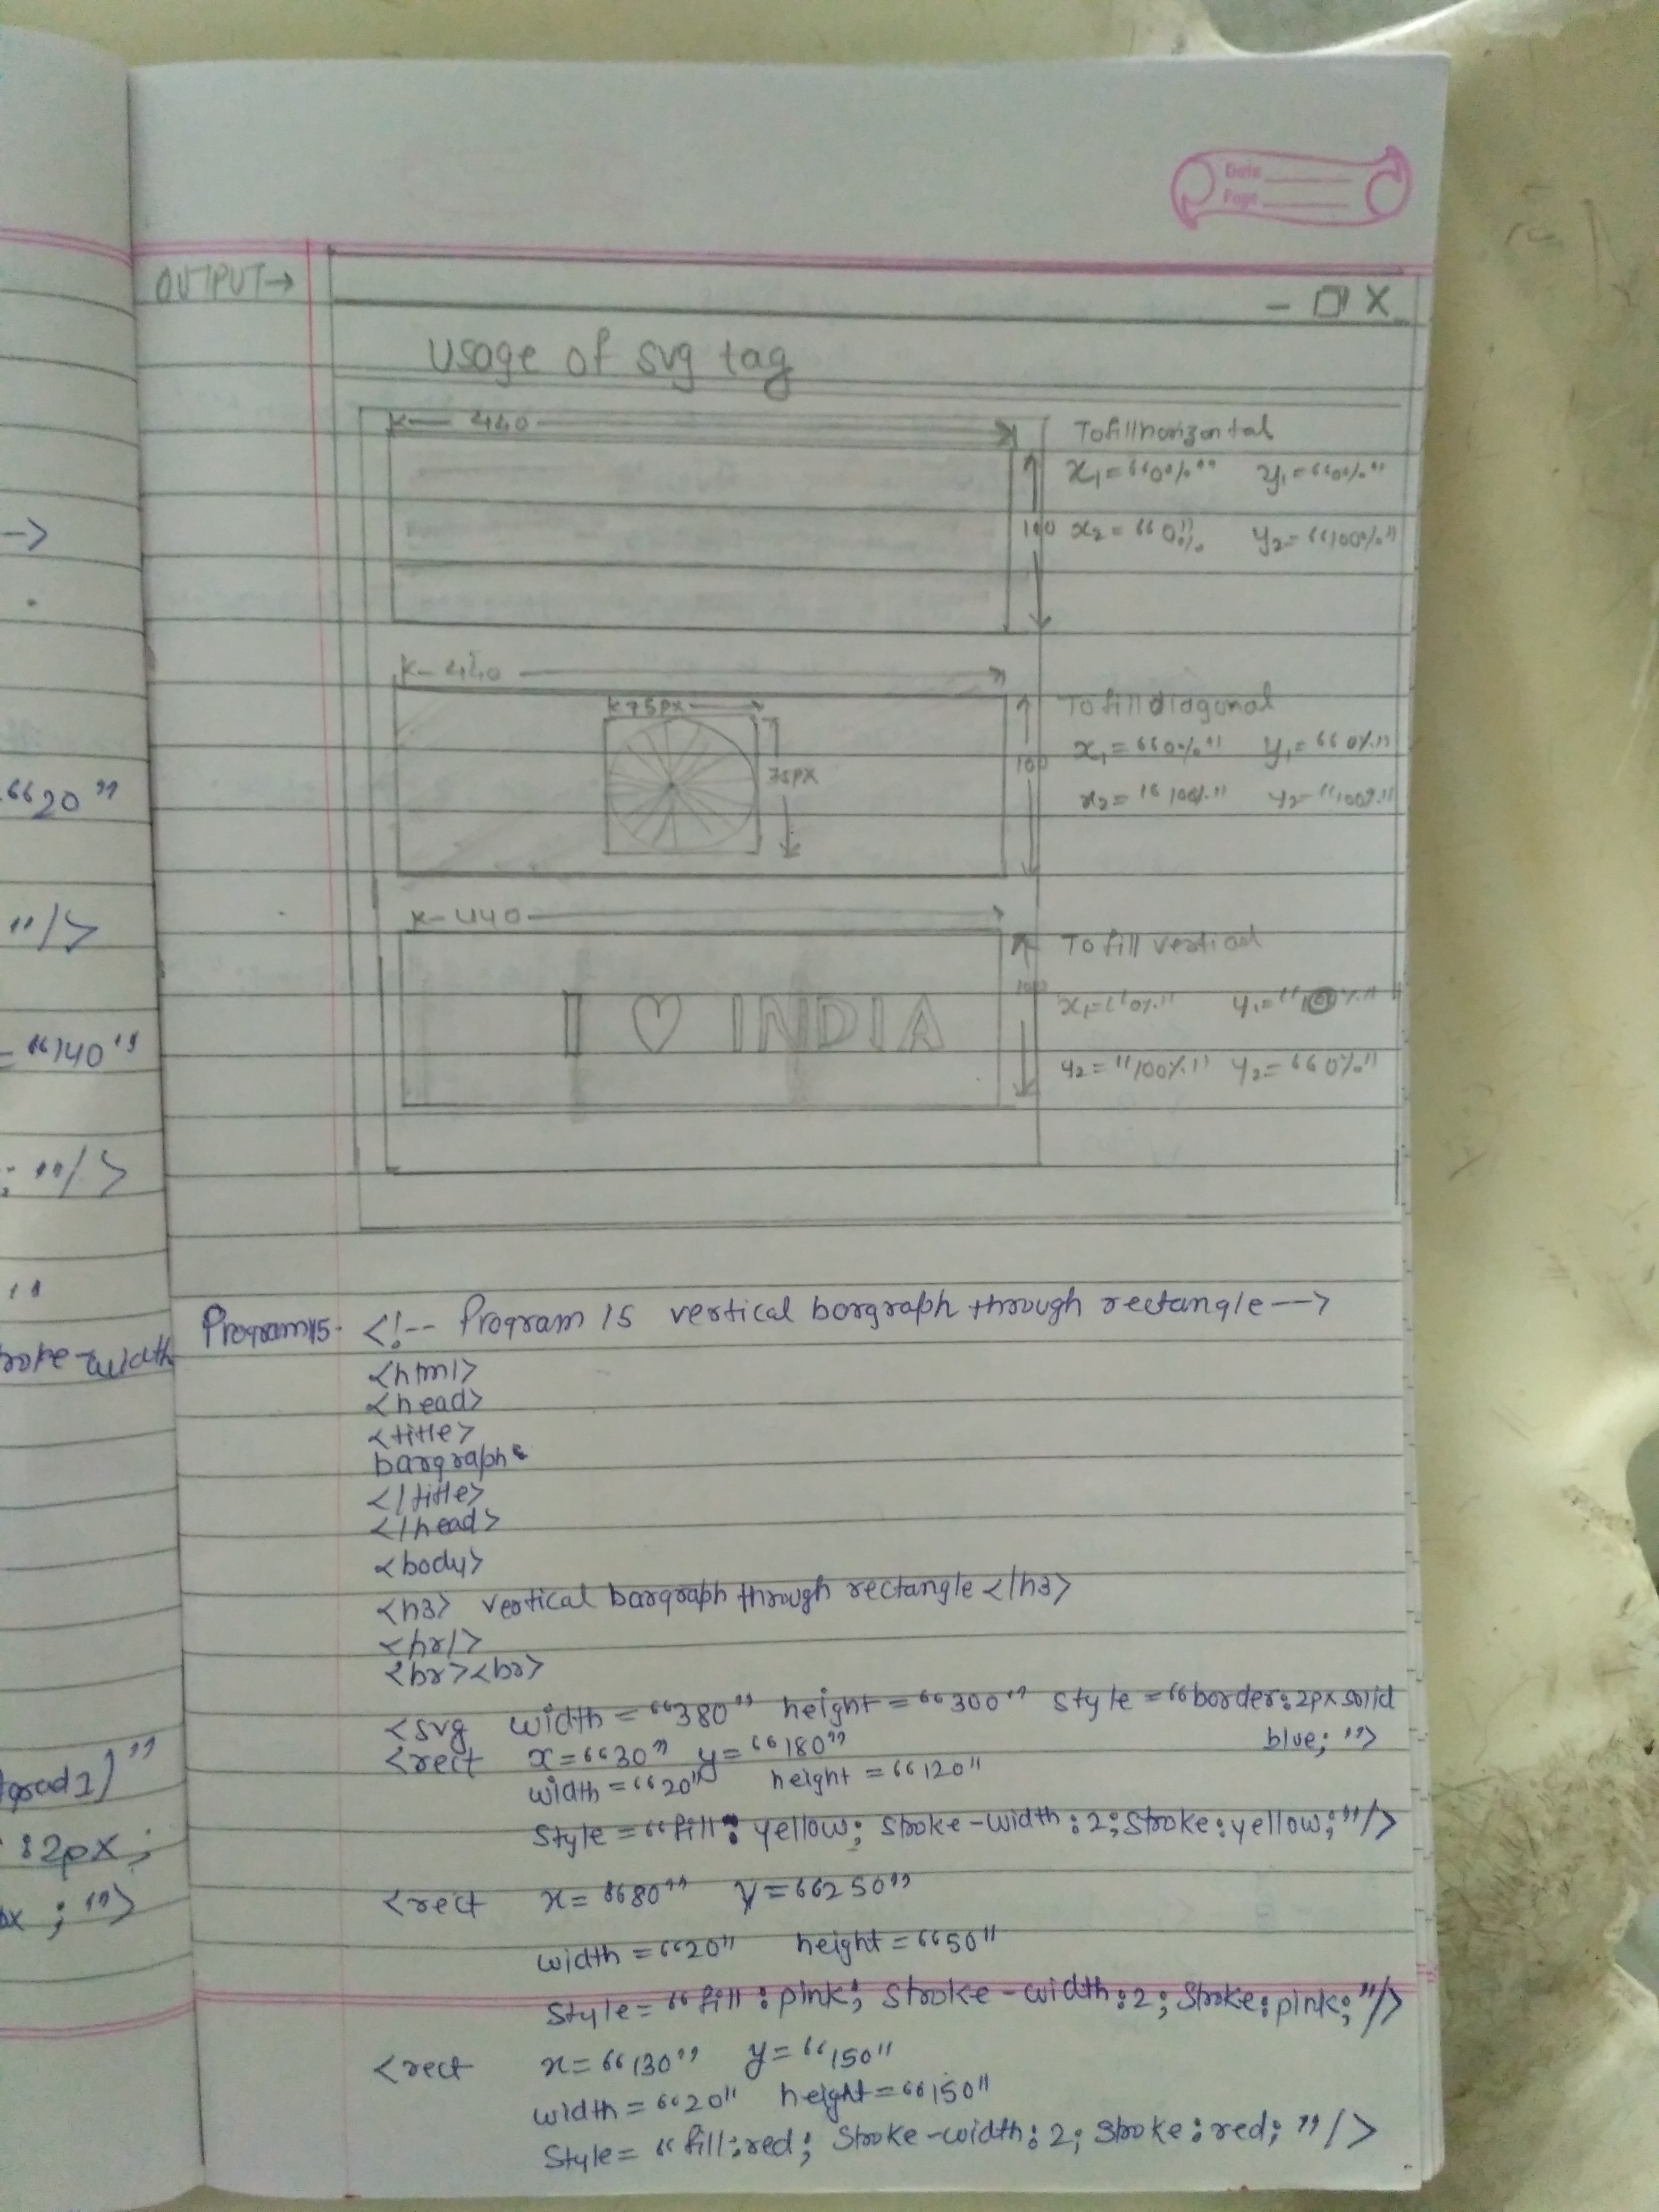 Date
Page
OUTPUT→
- X
Usage of svg tag
440
To fill horizontal
x1=“0%” y1=“0%”
100 x2=“0%” y2=“100%”
440
To fill diagonal
75px
x1=“0%” y1=“0%”
100
75px
x2=“100%” y2=“100%”
440
To fill vertical
100
x1=“0%” y1=“100%”
I ♡ INDIA
y2=“100%” y2=“0%”
-->
“20”
"/>
=“140”
; "/>
"
stroke-width
grad1)”
:2px;
px; ">
Program15- <!-- Program 15 vertical bargraph through rectangle-->
<html>
<head>
<title>
bargraph
</title>
</head>
<body>
<h3> vertical bargraph through rectangle </h3>
<hr/>
<br><br>
<svg width=“380” height=“300” style=“border:2px solid
blue; ”>
<rect x=“30” y=“180”
width=“20” height=“120”
style=“fill: yellow; stroke-width:2; stroke:yellow;”/>
<rect x=“80” y=“250”
width=“20” height=“50”
style=“fill:pink; stroke-width:2; stroke:pink;”/>
<rect x=“130” y=“150”
width=“20” height=“150”
style=“fill:red; stroke-width:2; stroke:red; ”/>